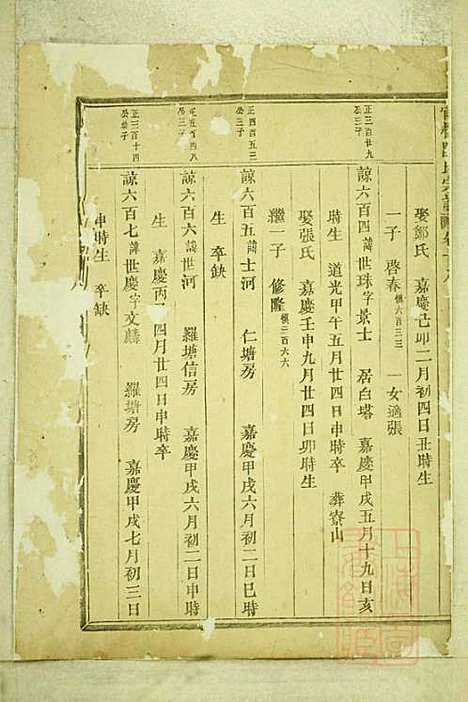 娶鄭氏　嘉慶己卯二月初四日丑時生
一子　啓春慎六百三三　一女適張
正三百廿九公三子
諒六百四諱世珠字景士　居白塔　嘉慶甲戌五月十九日亥
時生　道光甲午五月廿四日申時卒　葬寮山
娶張氏　嘉慶壬申九月廿四日卯時生
繼一子　修隆慎三百六六
正四百五三公三子
諒六百五諱士河　仁塘房　嘉慶甲戌六月初二日巳時
生　卒缺
正五百四八公三子
諒六百六諱世河　羅塘信房　嘉慶甲戌六月初二日申時
生　嘉慶丙　四月廿四日申時卒
正三百十四公子
諒六百七諱世慶字文麟　羅塘房　嘉慶甲戌七月初三日
申時生　卒缺